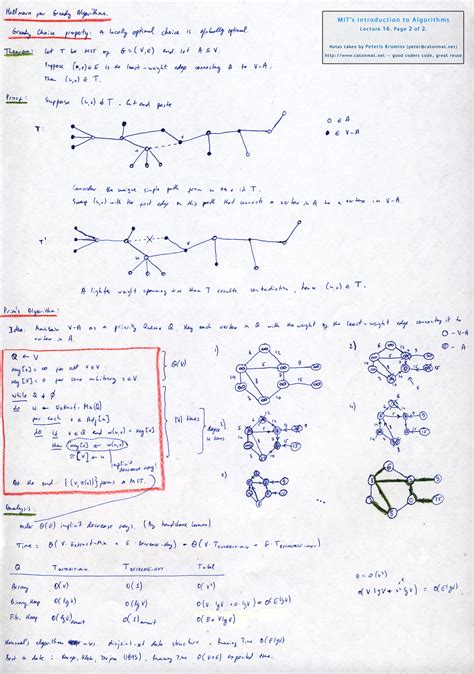 MIT's Introduction to Algorithms
Lecture 16. Page 2 of 2.
Notes taken by Peteris Krumins (peter@catonmat.net)
http://www.catonmat.net -- good coders code, great reuse
Hallmark for Greedy Algorithms.
Greedy Choice property: A locally optimal choice is globally optimal.
Theorem: Let T be MST of G = (V, E) and let A ⊆ V.
Suppose (u,v) ∈ E is the least-weight edge connecting A to V-A.
Then (u,v) ∈ T.
Proof: Suppose (u,v) ∉ T. Cut and paste
T:
o ∈ A
● ∈ V-A
Consider the unique simple path from u to v in T.
Swap (u,v) with the first edge on this path that connects a vertex in A to a vertex in V-A.
T'
A lighter weight spanning tree than T results, contradiction, hence (u,v) ∈ T.
Prim's Algorithm:
Idea: Maintain V-A as a priority Queue Q. Key each vertex in Q with the weight of the least-weight edge connecting it to
vertex in A.
Q ← V
key[v] = ∞ for all v ∈ V
key[s] = 0 for some arbitrary s ∈ V
while Q ≠ ∅
do u ← Extract-Min(Q)
for each v ∈ Adj[u]
do if v ∈ Q and w(u,v) < key[v]
then key[v] ← w(u,v)
π[v] ← u
implicit decrease key!
At the end {(v, π(v))} forms a MST.
Θ(V)
|V| times
degree(u) times
1)
2)
3)
4)
Analysis:
Θ(E) implicit decrease keys. (By handshake lemma).
Time = Θ(V · Extract-Min + E · Decrease-key) = Θ(V · T extract-min + E · T decrease-key)
Q T extract-min T decrease-key Total
Array O(V) O(1) O(V²)
Binary Heap O(lgV) O(lgV) O(V·lgV + E·lgV) = O(ElgV)
Fib. Heap O(lgV) amort O(1) amort O(E + VlgV)
E = O(V²)
Kruskal's algorithm uses disjoint-set data structure. Running Time O(E lgV)
Best to date: Karger, Klein, Tarjan (1993). Running Time O(V+E) expected time.